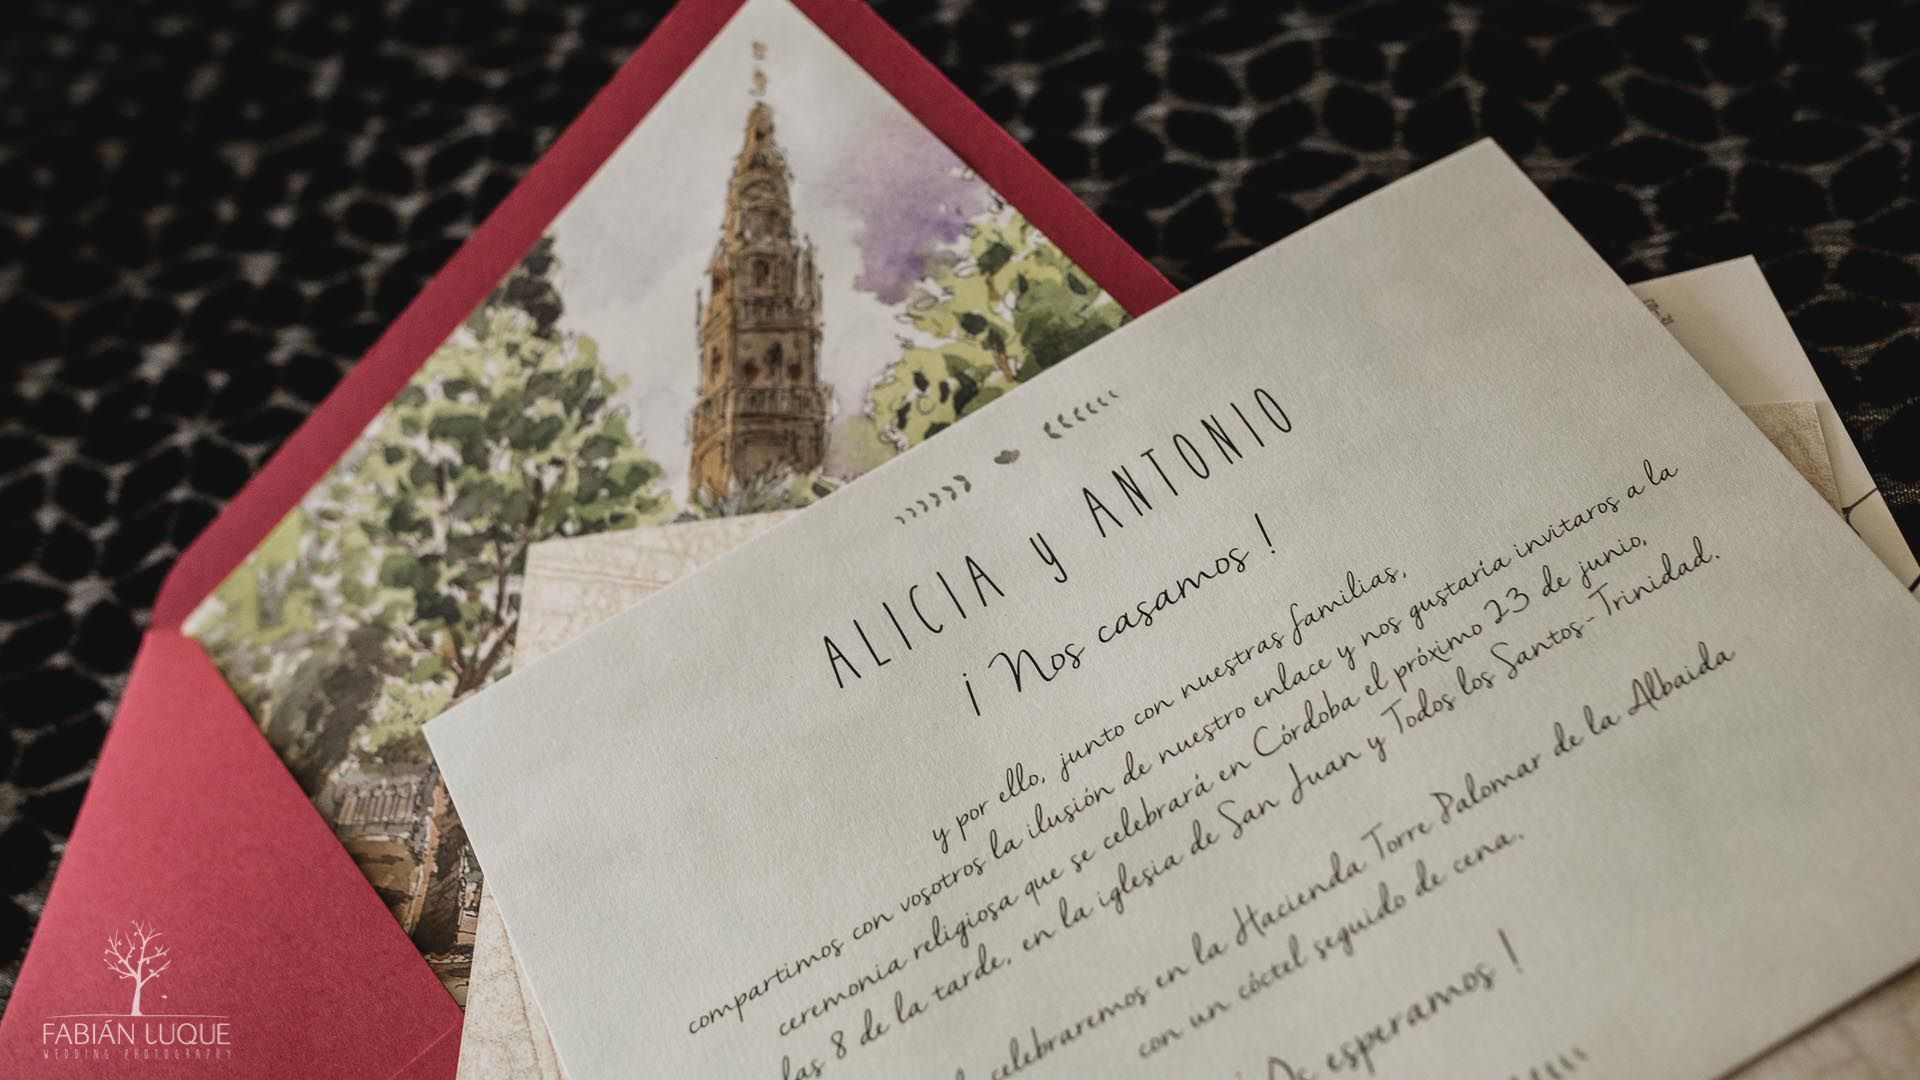 ALICIA y ANTONIO
¡ Nos casamos !
y por ello, junto con nuestras familias,
compartimos con vosotros la ilusión de nuestro enlace y nos gustaría invitaros a la
ceremonia religiosa que se celebrará en Córdoba el próximo 23 de junio,
las 8 de la tarde, en la iglesia de San Juan y Todos los Santos-Trinidad.
celebraremos en la Hacienda Torre Palomar de la Albaida
con un cóctel seguido de cena.
Os esperamos !
FABIÁN LUQUE
WEDDING PHOTOGRAPHY